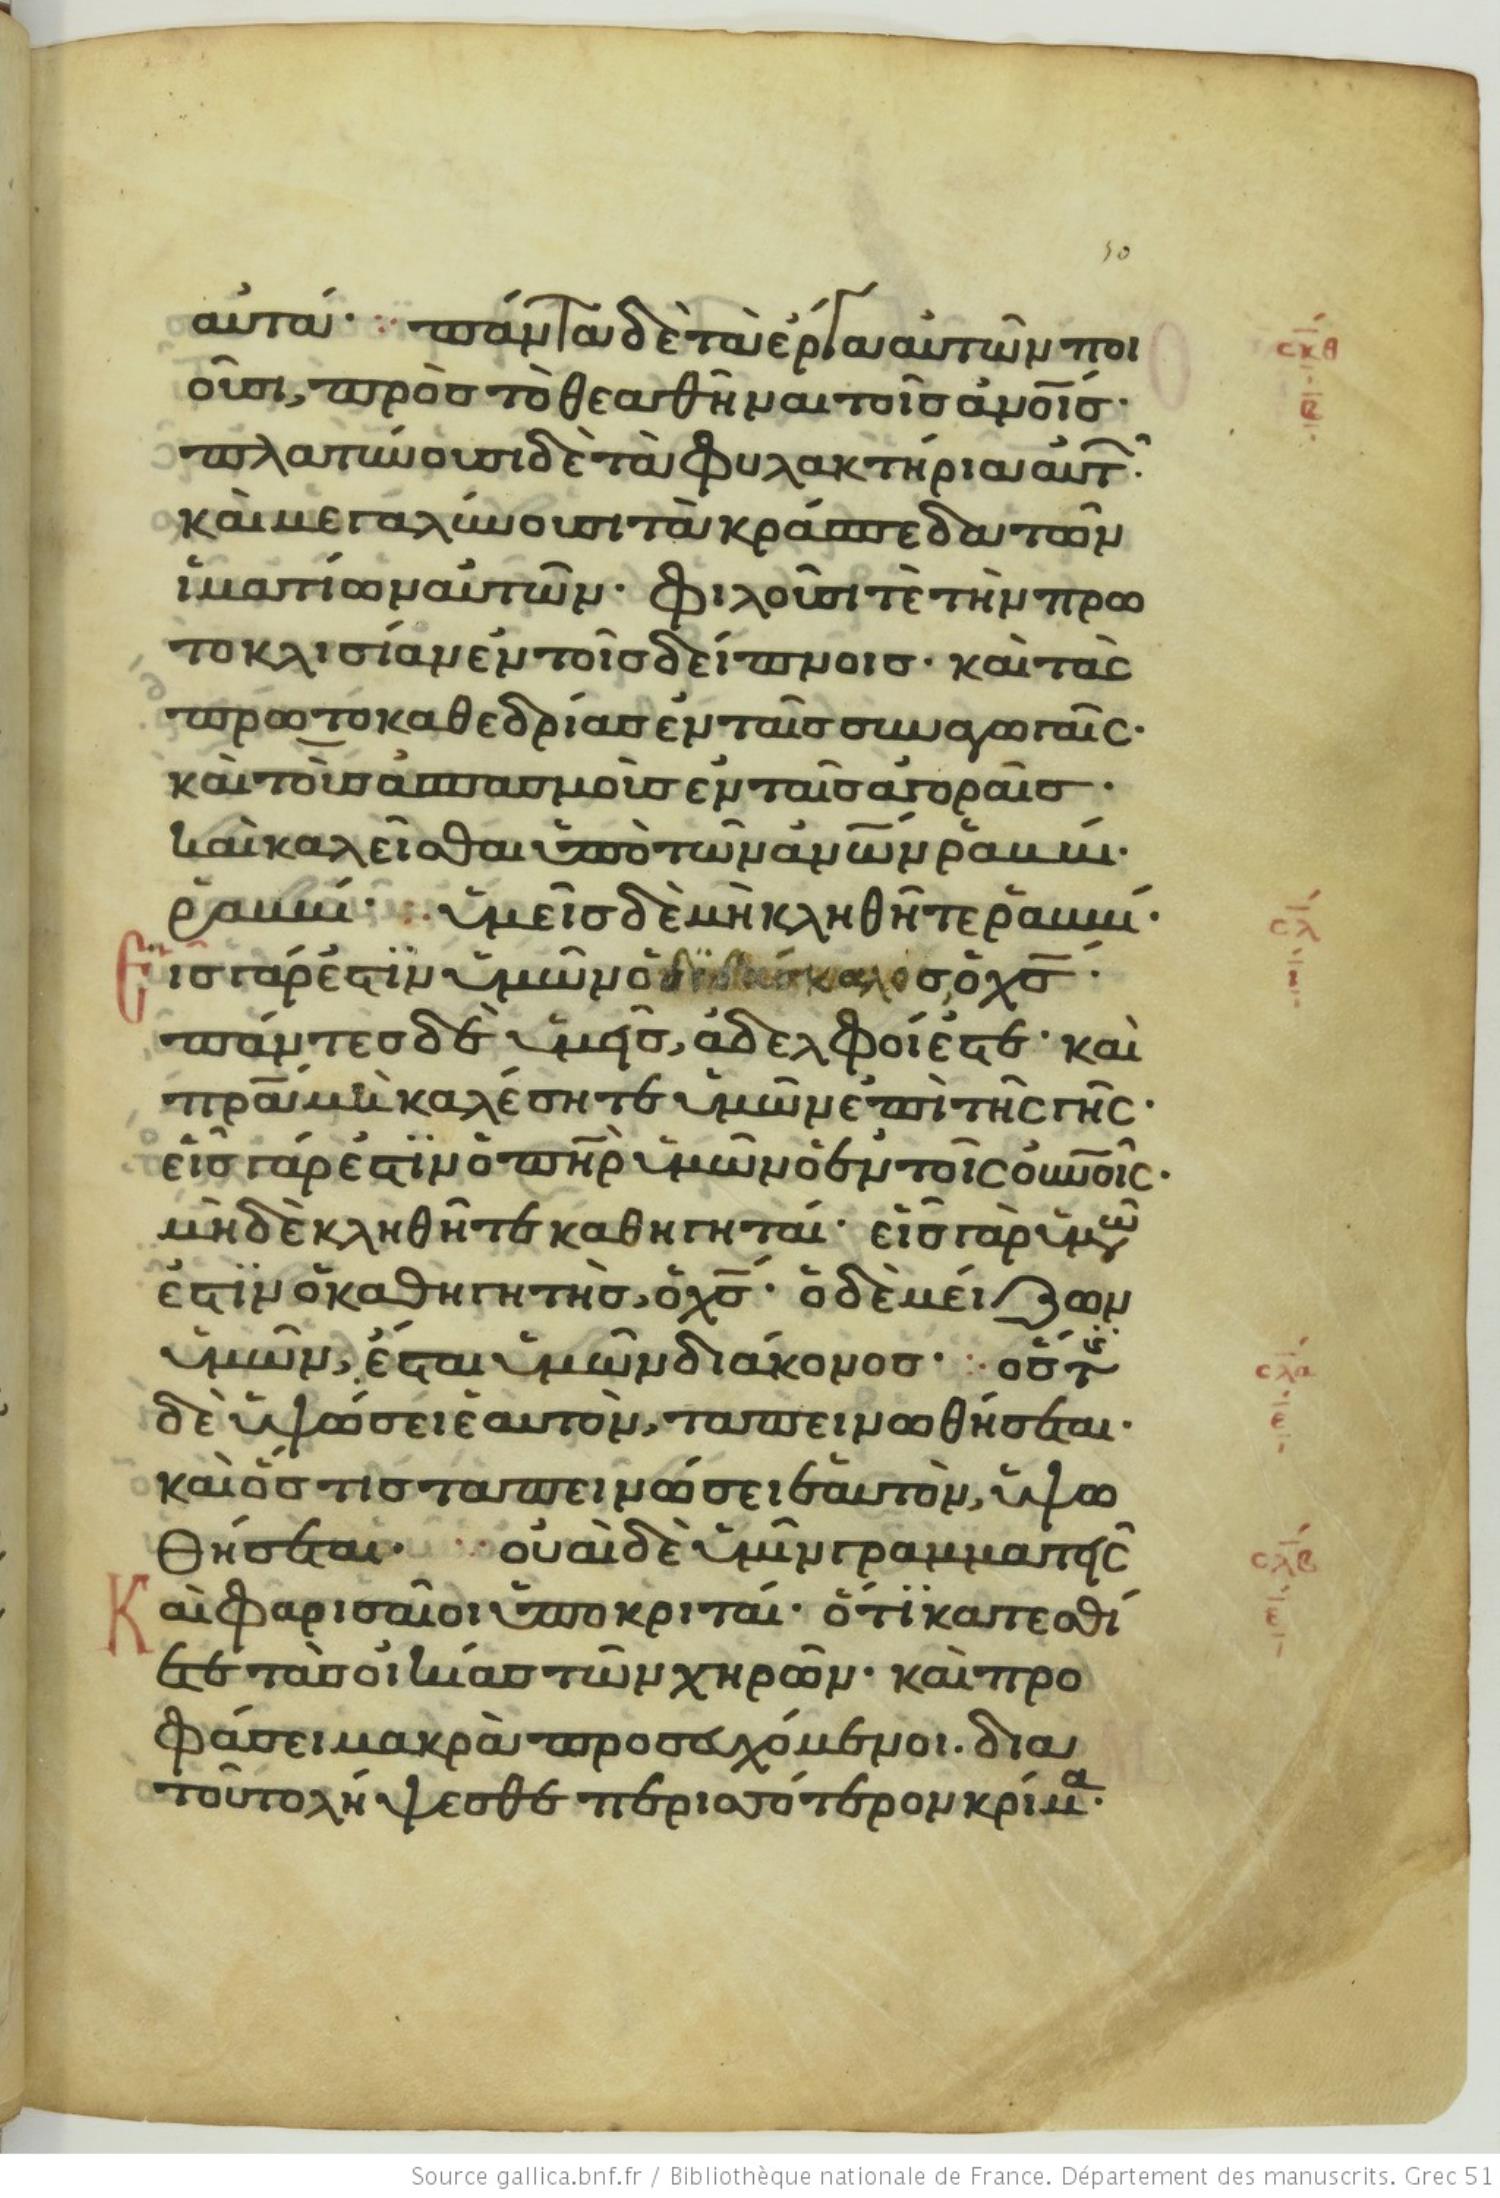 50
αὐτά· πάντα δὲ τὰ ἔργα αὐτῶν ποι
οῦσι, πρὸς τὸ θεαθῆναι τοῖς ἀνοῖς·
πλατύνουσι δὲ τὰ φυλακτήρια αὐτ·
καὶ μεγαλύνουσι τὰ κράσπεδα τῶν
ἱματίων αὐτῶν· φιλοῦσι τὲ τὴν πρω
τοκλισίαν ἐν τοῖς δείπνοις· καὶ τὰς
πρωτοκαθεδρίας ἐν ταῖς συναγωγαῖς·
καὶ τοὺς ἀσπασμοὺς ἐν ταῖς ἀγοραῖς·
καὶ καλεῖσθαι ὑπὸ τῶν ἀνων ῥαββί·
ῥαββί· ὑμεῖς δὲ μὴ κληθῆτε ῥαββί·
Εἷς γάρ ἐστϊν ὑμῶν ὁ διδάσκαλος, ὁ χς·
πάντες δὲ ὑμεῖς, ἀδελφοί ἐστε· καὶ
πρα μὴ καλέσητε ὑμῶν ἐπὶ τῆς γῆς·
εἷς γάρ ἐστϊν ὁ πηρ ὑμῶν ὁ ἐν τοῖς οὐνοῖς·
μηδὲ κληθῆτε καθηγηταί· εἷς γὰρ ὑμῶ
ἐστϊν ὁ καθηγητὴς, ὁ χς· ὁ δὲ μείζων
ὑμῶν, ἔσται ὑμῶν διάκονος· ὅστϊς
δὲ ὑψώσει ἑαυτὸν, ταπεινωθήσεται·
καὶ ὅστις ταπεινώσει ἑαυτὸν, ὑψω
θήσεται· οὐαὶ δὲ ὑμῖν γραμματεῖς
Καὶ φαρισαῖοι ὑποκριταί· ὅτϊ κατεσθί
ετε τὰς οἰκίας τῶν χηρῶν· καὶ προ
φάσει μακρὰ προσευχόμενοι· δια
τοῦτο λήψεσθε περισσότερον κρίμα·
σκθ
β
σλ
ι
σλα
ε
σλβ
ε
Source gallica.bnf.fr / Bibliothèque nationale de France. Département des manuscrits. Grec 51